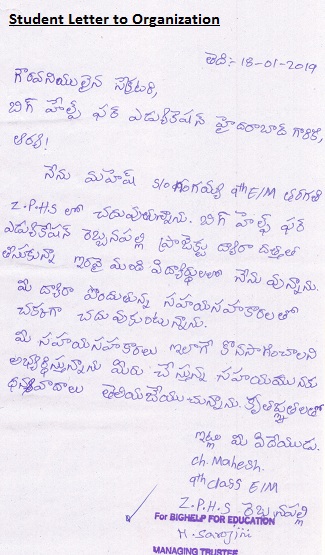 Student Letter to Organization
తేది:- 18-01-2019
గౌరవనీయులైన సెక్రటరి,
బిగ్ హెల్ప్ ఫర్ ఎడ్యుకేషన్ హైదరాబాద్ గారికి,
ఆర్యా!
నేను మహేష్ S/o గంగయ్య 9th E/M తరగతి
Z.P.H.S లో చదువుచున్నాను. బిగ్ హెల్ప్ ఫర్
ఎడ్యుకేషన్ రెబ్బనపల్లి ప్రాజెక్టు ద్వారా దత్తత
తీసుకున్నా ఇరవై మంది విద్యార్థులలో నేను వున్నాను.
మీ ద్వారా పొందుతున్న సహాయసహకారాలతో
చక్కగా చదువుకుంటున్నాను.
మీ సహాయసహకారాలు ఇలాగే కొనసాగించాలని
అభ్యర్థిస్తున్నాను మీరు చేస్తున్న సహాయమునకు
ధన్యవాదాలు తెలియచేయుచున్నాను. కృతజ్ఞతలతో
ఇట్లు మీ విధేయుడు.
ch. Mahesh.
9th class E/M
Z.P.H.S రెబ్బనపల్లి
For BIGHELP FOR EDUCATION
H. Sarojini
MANAGING TRUSTEE